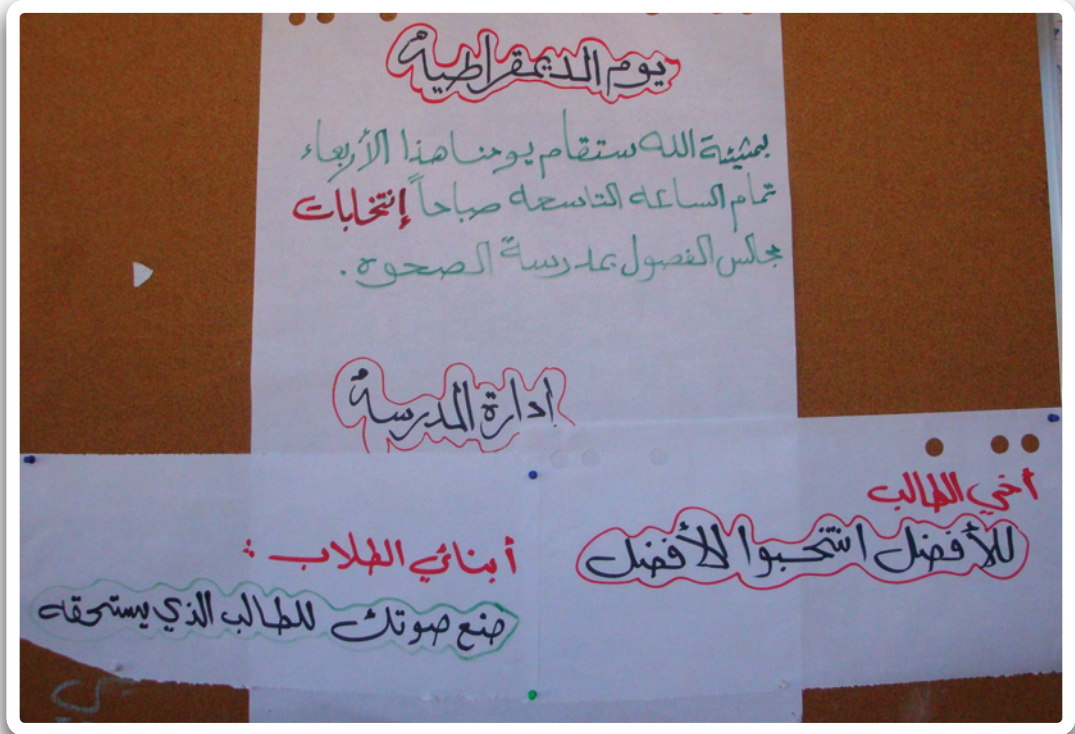 يوم الديمقراطية
بمشيئة الله ستقام يومنا هذا الأربعاء
تمام الساعه التاسعه صباحاً إنتخابات
مجالس الفصول بمدرسة الصحوه.
إدارة المدرسة
أخي الطالب
للأفضل انتخبوا الأفضل
أبنائي الطلاب :
ضع صوتك للطالب الذي يستحقه